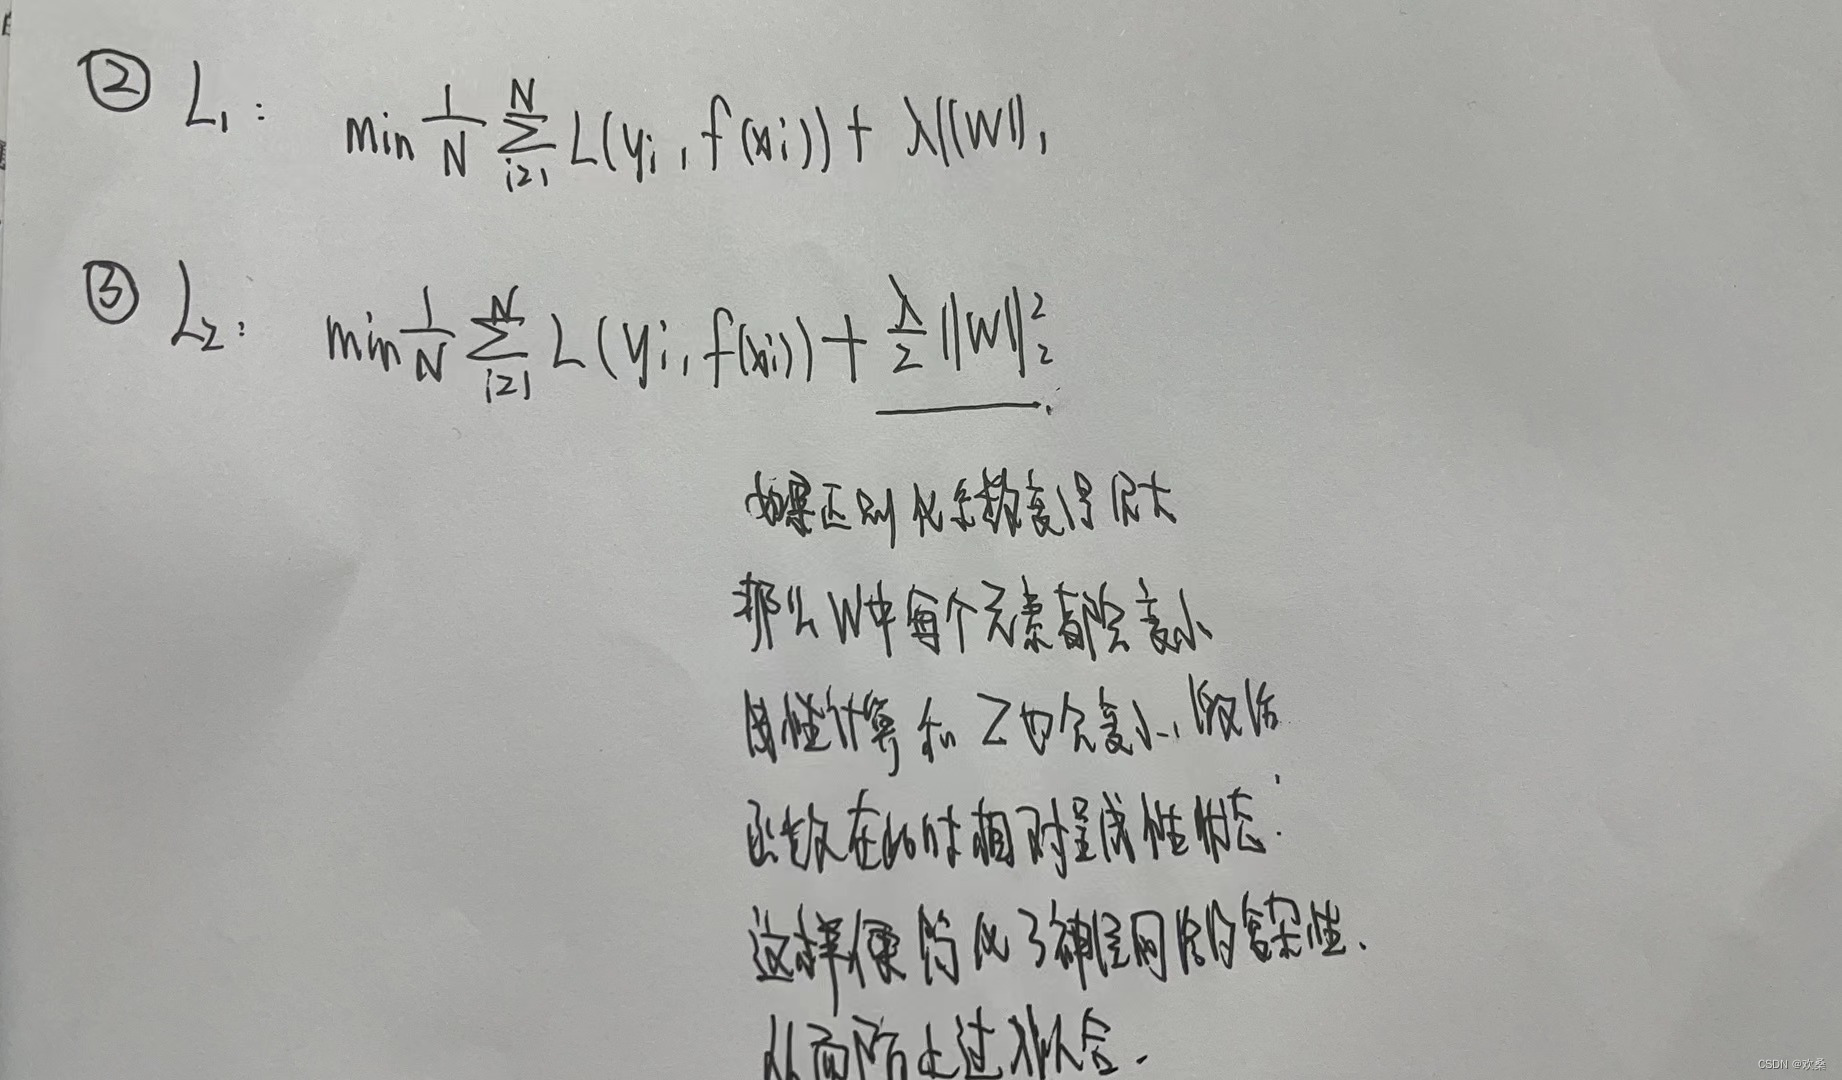 ② L₁: min 1/N ∑ᵢ₌₁ᴺ L(yᵢ, f(xᵢ)) + λ||W||₁
③ L₂: min 1/N ∑ᵢ₌₁ᴺ L(yᵢ, f(xᵢ)) + λ/2 ||W||₂²
如果正则化系数变得很大
那么W中每个元素都会变小
线性计算和Z也会变小,激活
函数在此时相对呈线性状态.
这样便简化了神经网络的复杂性.
从而防止过拟合.
CSDN @欢桑